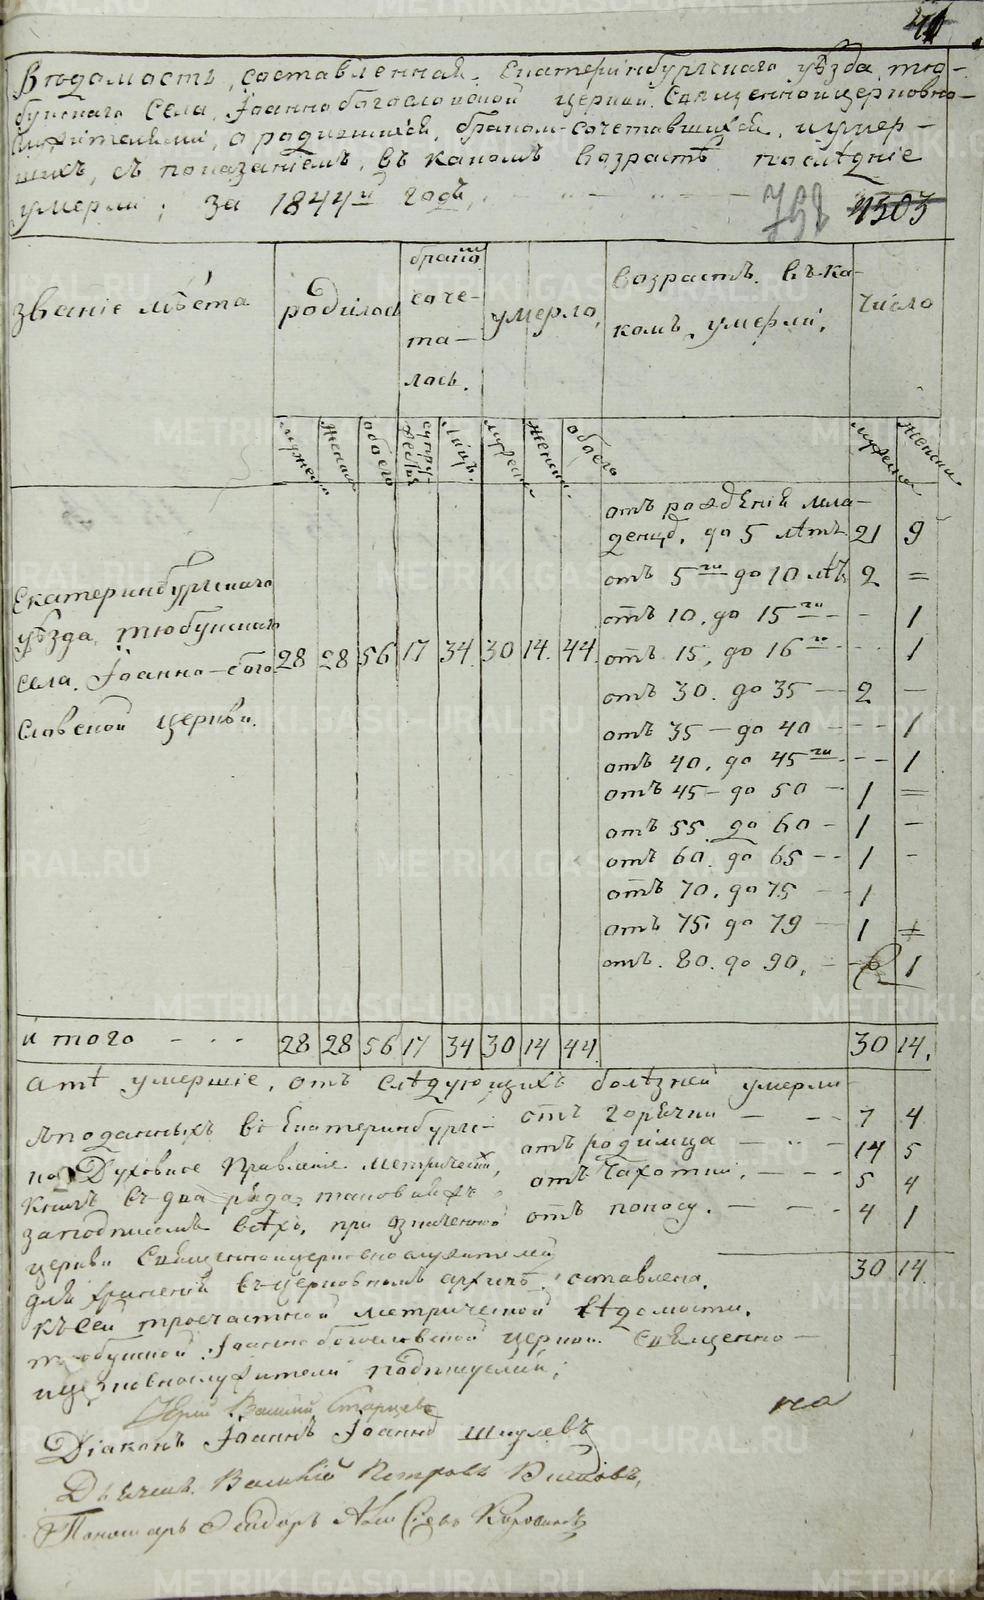 41
Вѣдомость, составленная Екатеринбургскаго уѣзда, тю-
бунскаго Села, Іоанно богословской церкви Священноицерковно-
служителями, о родившихся, бракомъ-сочетавшихся, и умер-
шихъ, съ показаніемъ, въ какомъ возрастѣ послѣдніе
умерли; за 1844й годъ,
1303
званіе мѣста
родилось
бракомъ
соче-
та-
лось.
умерло,
возрастъ въ ка-
комъ умерли,
Число
мужеска
женска
обоего
супру-
жествъ
лицъ
мужеска
женска
обоего
мужеска
женска
отъ рожденія мла-
денцовъ, до 5 лѣтъ 21 9
отъ 5ти до 10 лѣтъ 2 =
отъ 10. до 15ти - - 1
отъ 15, до 16го - - 1
отъ 30. до 35 - 2 -
отъ 35 - до 40 - - - 1
отъ 40. до 45ти - - - 1
отъ 45 - до 50 - 1 =
отъ 55. до 60 - 1 -
отъ 60. до 65 - - 1 -
отъ 70. до 75 - - 1
отъ 75. до 79 - 1
отъ 80. до 90, - 1
Екатеринбургскаго
уѣзда, тюбунскаго
села, Іоанно-бого
словской церкви.
28 28 56 17 34 30 14 44
итого - - - 28 28 56 17 34 30 14 44 30 14.
А тѣ умершіе, отъ слѣдующихъ болѣзней умерли
отъ горячки - - - 7 4
отъ родимца - - - 14 5
отъ Чахотки, - - - 5 4
отъ поносу. - - - 4 1
30 14
поданныхъ въ Екатеринбургс-
кое Духовное Правленіе метрическихъ
книгъ въ два ряда, таковыхъ
заподписомъ всѣхъ, при означенной
церкви Священноицерковнослужителей
для храненія въ церковномъ архивѣ, оставлена.
Къ сей троечастной метрической вѣдомости.
тюбунской Іоаннобогословской церкви Священно-
ицерковнослужители подписуемся;
Іерей Василій Старцевъ
на
Діаконъ Іоаннъ Іоанновъ Шишевъ
Дьячекъ Василій Петровъ
Пономарь Ѳедоръ